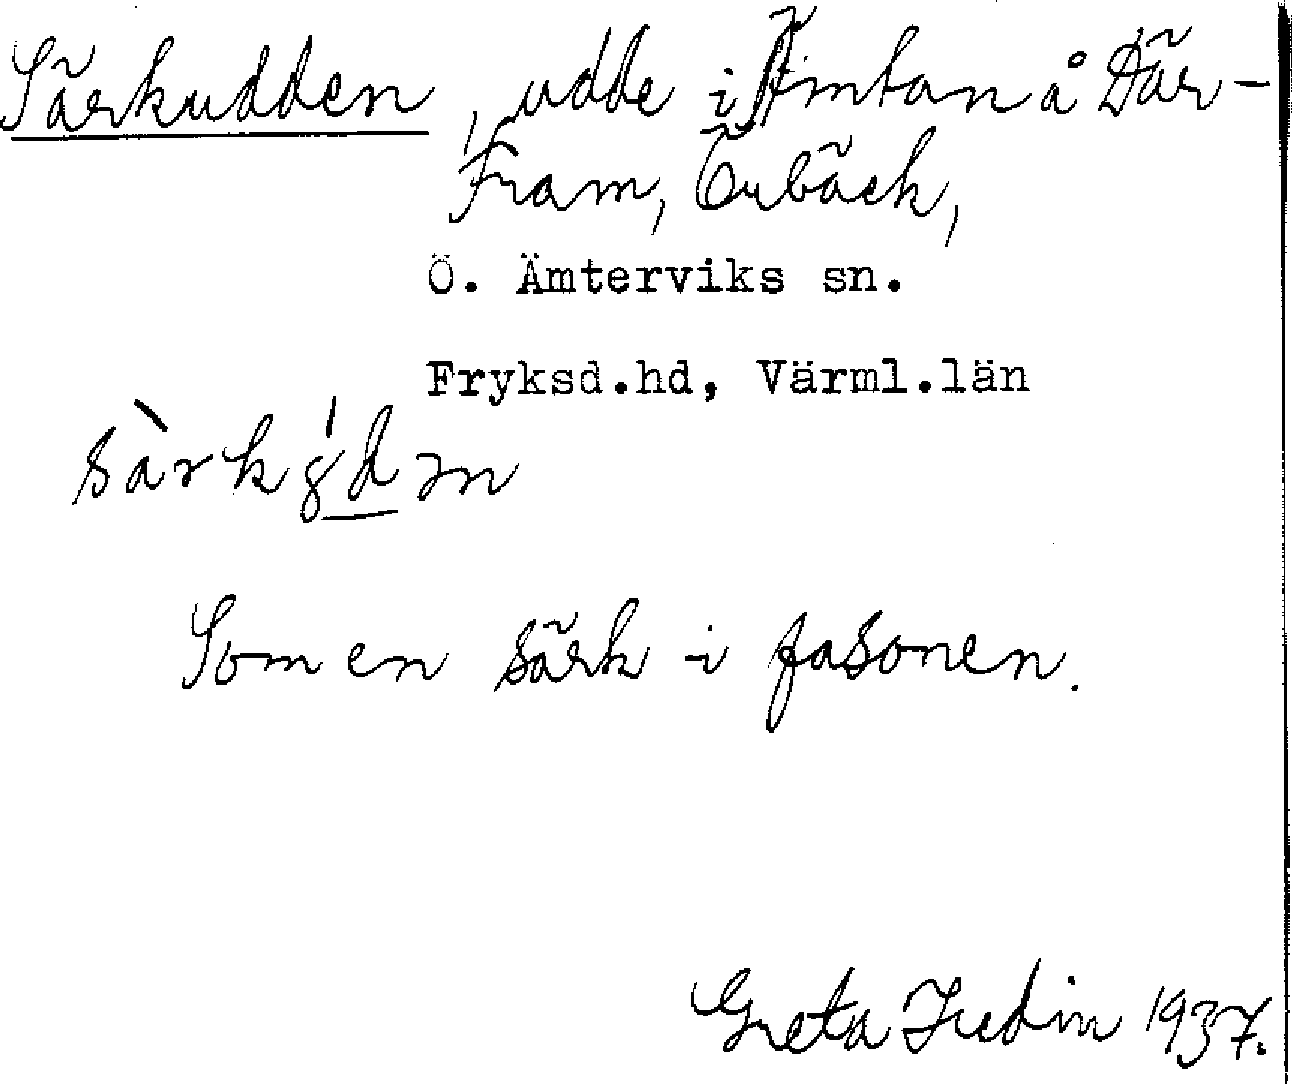 Särkudden, udde i Ämtan å Där-
Fram, Örbäck,
Ö. Ämterviks sn.
Fryksd.hd, Värml.län
Som en särk i fasonen.
Greta Hedin 1937.